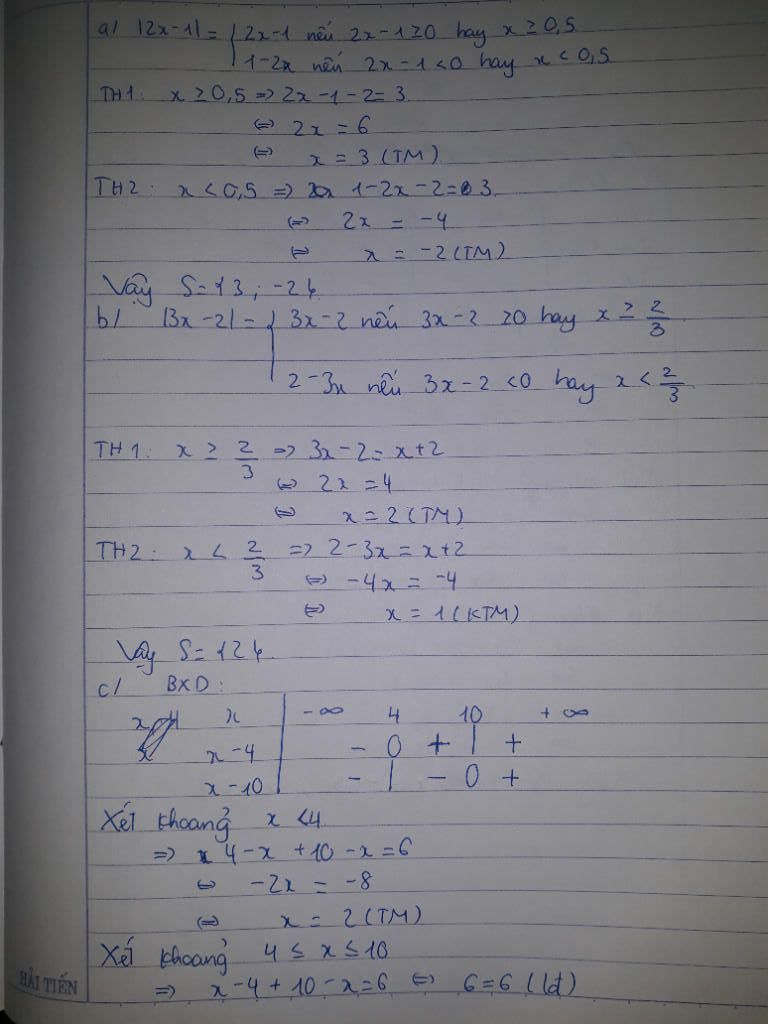 a/ |2x-1| = { 2x-1 nếu 2x-1≥0 hay x ≥ 0,5
1-2x nếu 2x-1<0 hay x < 0,5
TH1: x ≥ 0,5 => 2x-1-2=3
<=> 2x = 6
<=> x = 3 (TM)
TH2: x < 0,5 => 1-2x-2=3
<=> 2x = -4
<=> x = -2 (TM)
Vậy S={3; -2}
b/ |3x-2| = { 3x-2 nếu 3x-2 ≥0 hay x ≥ 2/3
2-3x nếu 3x-2 <0 hay x < 2/3
TH1: x ≥ 2/3 => 3x-2 = x+2
<=> 2x = 4
<=> x = 2 (TM)
TH2: x < 2/3 => 2-3x = x+2
<=> -4x = -4
<=> x = 1 (KTM)
Vậy S={2}
c/ BXD:
x | -∞ 4 10 +∞
x-4 | - 0 + | +
x-10 | - | - 0 +
Xét khoảng x <4
=> 4-x +10-x=6
<=> -2x = -8
<=> x = 2 (TM)
Xét khoảng 4 ≤ x ≤ 10
=> x-4+10-x=6 <=> 6=6 (lđ)
HẢI TIẾN